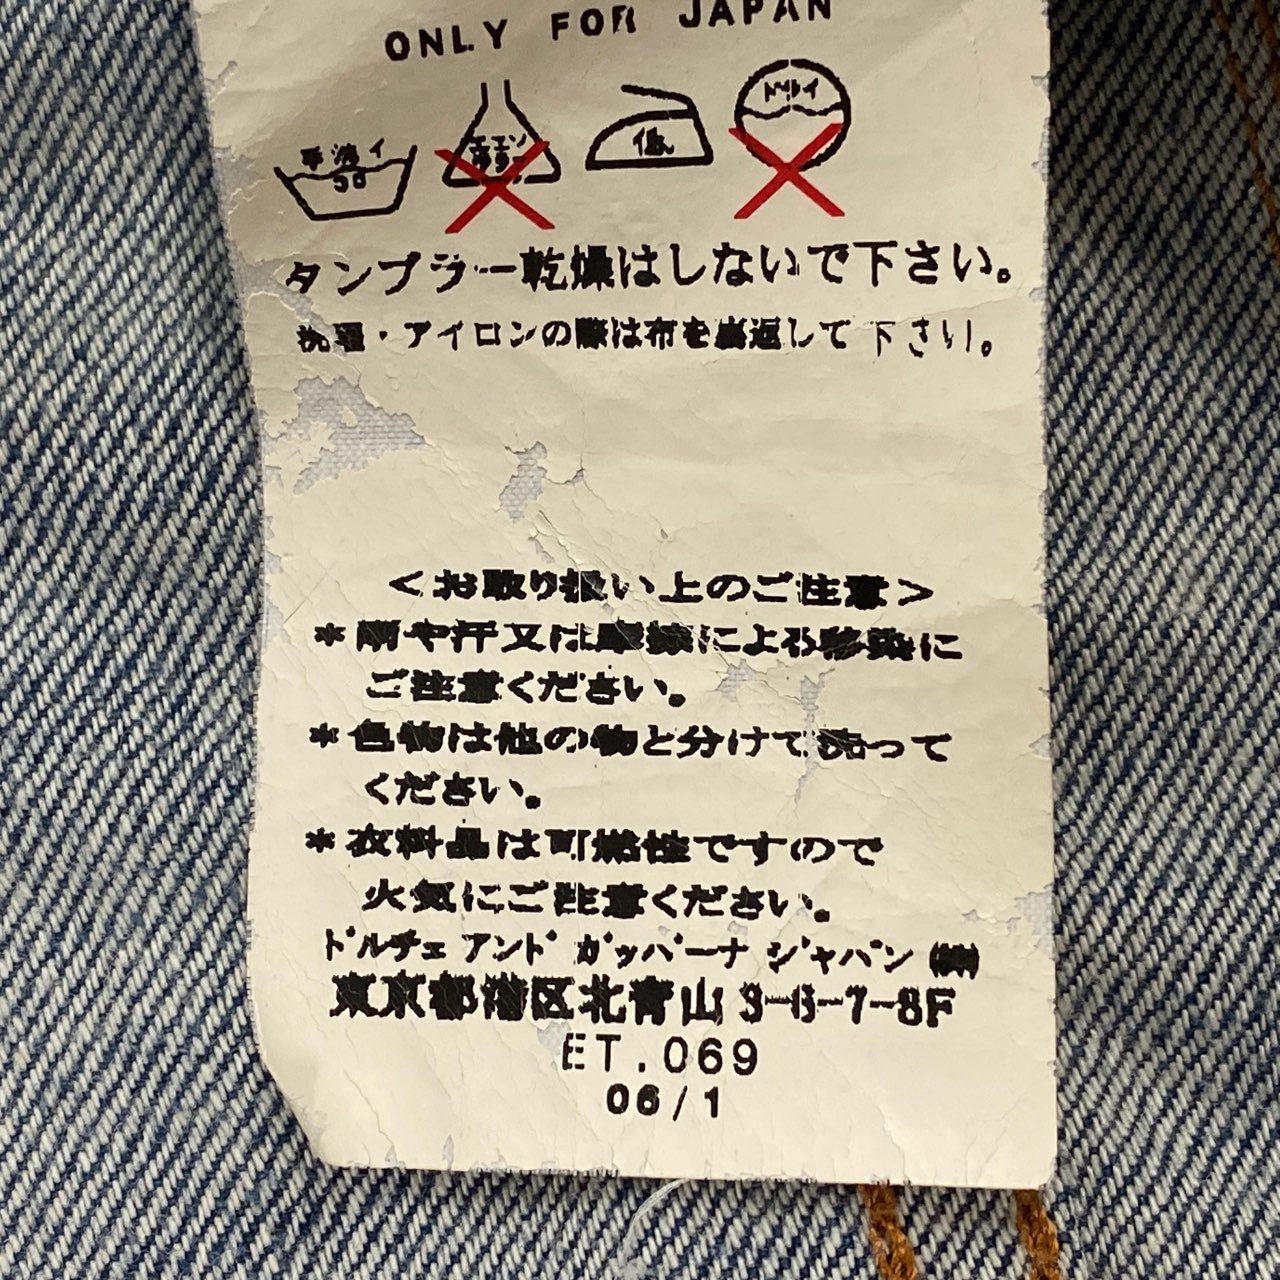 ONLY FOR JAPAN
手洗イ
30
エンソ
低
ドライ
タンブラー乾燥はしないで下さい。
洗濯・アイロンの際は布を裏返して下さい。
<お取り扱い上のご注意>
*雨や汗又は摩擦による移染に
ご注意ください。
*色物は他の物と分けて洗って
ください。
*衣料品は可燃性ですので
火気にご注意ください。
ドルチェ アンド ガッバーナ ジャパン ㈱
東京都港区北青山 3-6-7-8F
ET.069
06/1